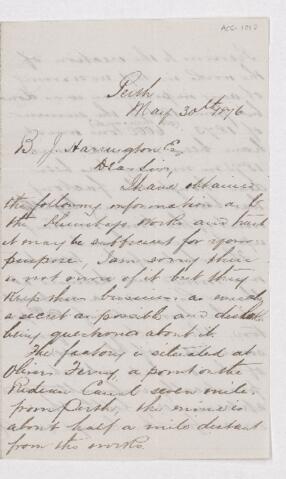 ACC-1027
Perth
May 30th 1876
B. J. Harrington Esq
Dear Sir,
I have obtained
the following information as to
the Plumbago Works and trust
it may be sufficient for your
purpose. I am sorry there
is not more of it but they
keep their business as nearly
a secret as possible and dislike
being questioned about it.
The factory is situated at
Olivers Ferry, a point on the
Rideau Canal seven miles
from Perth, the mine is
about half a mile distant
from the works.